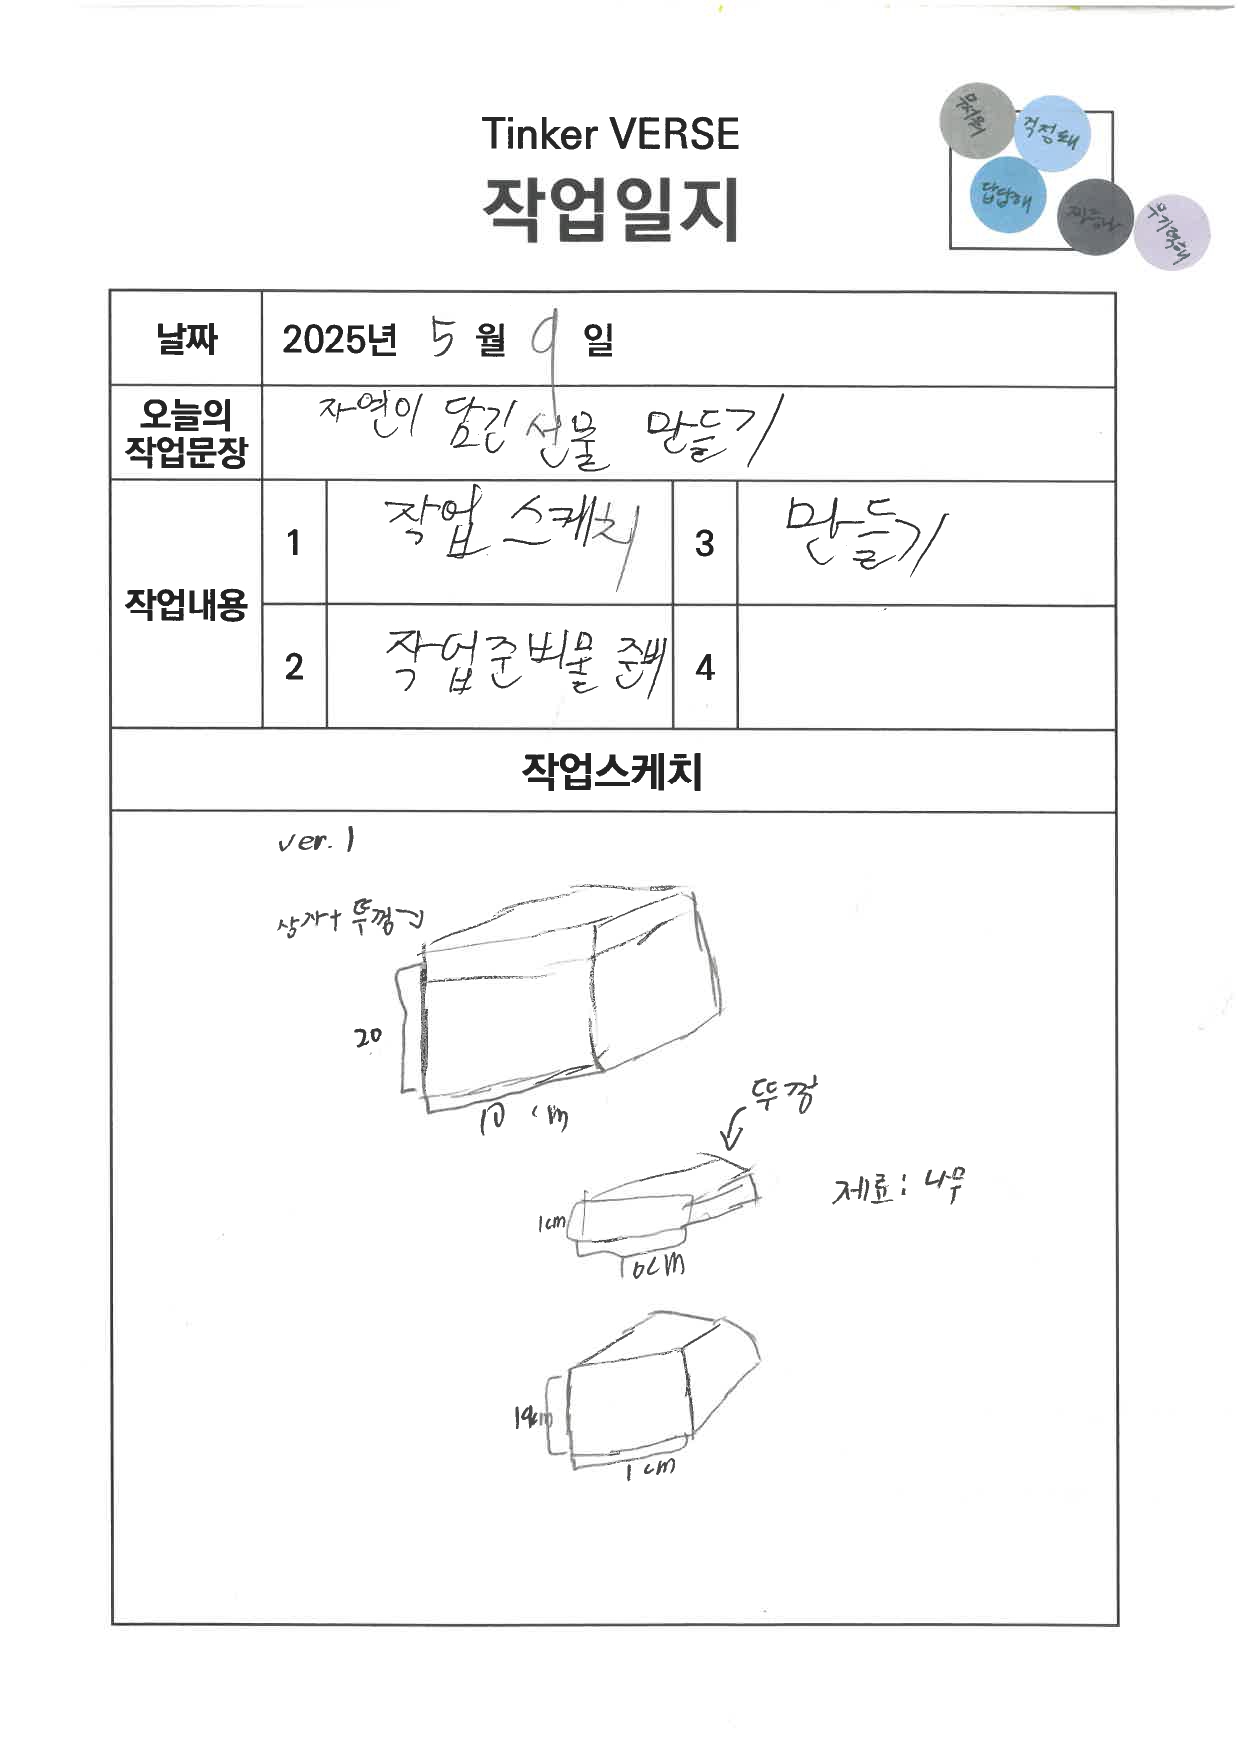 Tinker VERSE
작업일지
무서워
걱정돼
답답해
짜증나
무기력해
날짜 2025년 5월 9일
오늘의 작업문장 자연이 담긴 선물 만들기
작업내용
1 작업 스케치
3 만들기
2 작업준비물 준비
4
작업스케치
ver. 1
상자+뚜껑
20
10 cm
뚜껑
1cm
10cm
제료: 나무
19cm
1 cm